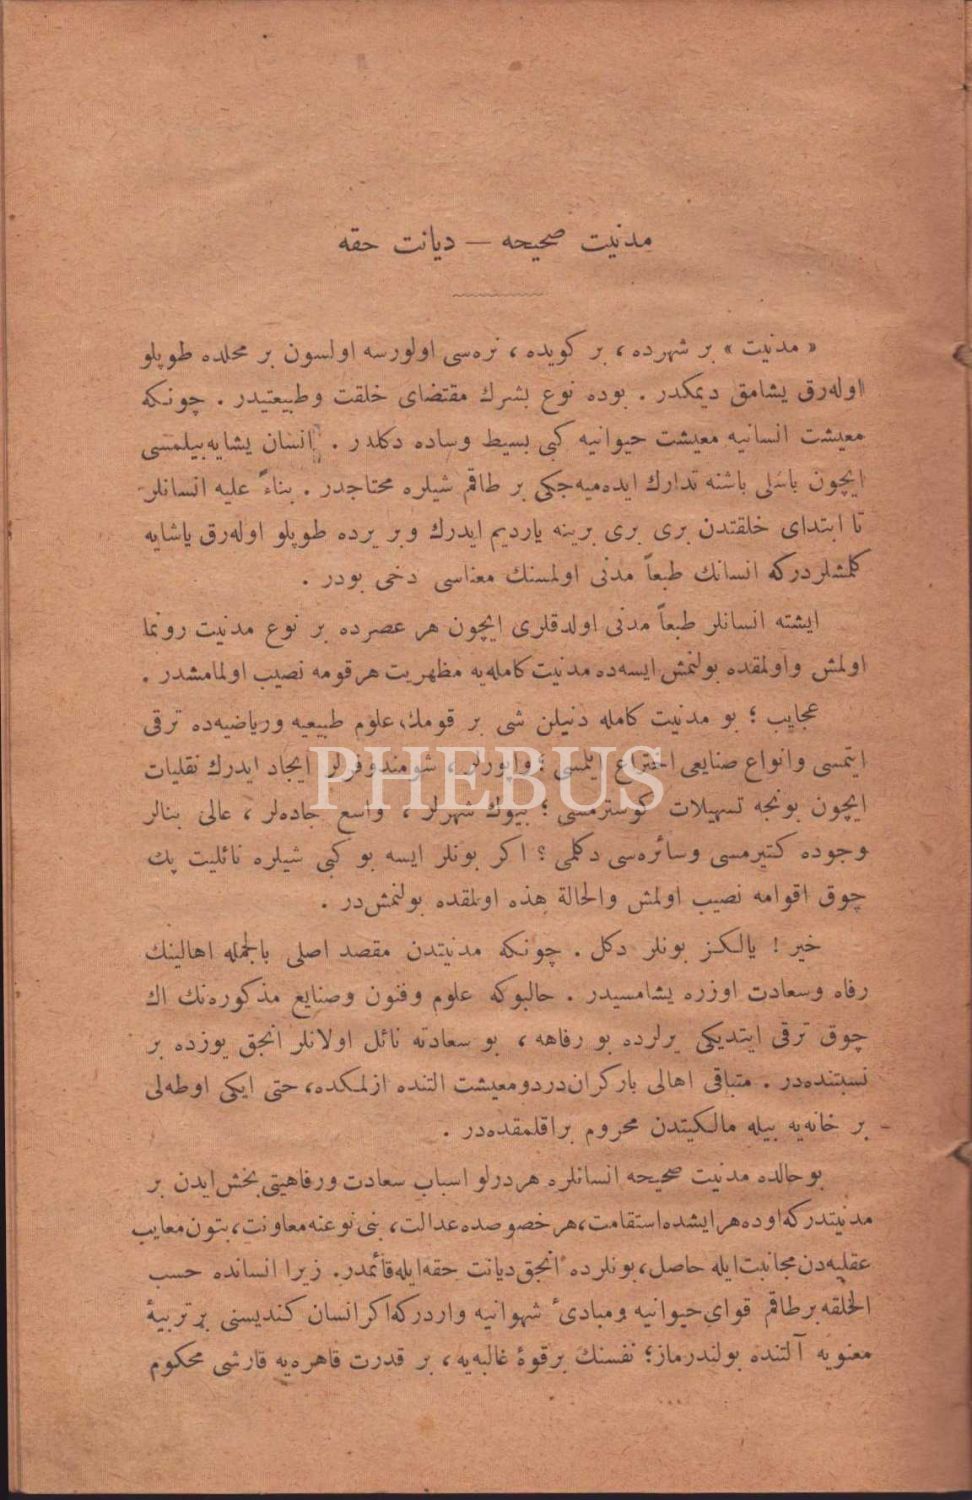 مدنيت صحيحه — ديانت حقه
« مدنيت » بر شهرده ، بر كويده ، نره‌سى اولورسه اولسون بر محلده طوپلو
اوله‌رق يشامق ديمكدر . بوده نوع بشرك مقتضاى خلقت وطبيعتيدر . چونكه
معيشت انسانيه معيشت حيوانيه كبى بسيط وساده دكلدر . انسان يشايه‌بيلمسى
ايچون باشلى باشنه تدارك ايده‌ميه‌جكى بر طاقم شيلره محتاجدر . بناءً عليه انسانلر
تا ابتداى خلقتدن برى برى برينه يارديم ايدرك وبر يرده طوپلو اوله‌رق ياشايه
كلمشلردركه انسانك طبعاً مدنى اولمسنك معناسى دخى بودر .
ايشته انسانلر طبعاً مدنى اولدقلرى ايچون هر عصرده بر نوع مدنيت رونما
اولمش واولمقده بولنمش ايسه‌ده مدنيت كامله‌يه مظهريت هر قومه نصيب اولمامشدر .
عجايب ؛ بو مدنيت كامله دنيلن شى بر قومك علوم طبيعيه ورياضيه‌ده ترقى
ايتمسى وانواع صنايعى اختراع ايلمسى ؛ واپورلر ، شومندوفرلر ايجاد ايدرك نقليات
ايچون بونجه تسهيلات كوسترمسى ؛ بيوك شهرلر ، واسع جاده‌لر ، عالى بنالر
وجوده كتيرمسى وسائره‌سى دكلمى ؟ اكر بونلر ايسه بو كبى شيلره نائليت پك
چوق اقوامه نصيب اولمش والحالة هذه اولمقده بولنمش‌در .
PHEBUS
خير ! يالكز بونلر دكل . چونكه مدنيتدن مقصد اصلى بالجمله اهالينك
رفاه وسعادت اوزره يشامسيدر . حالبوكه علوم وفنون وصنايع مذكوره‌نك اك
چوق ترقى ايتديكى يرلرده بو رفاهه ، بو سعادته نائل اولانلر انجق يوزده بر
نسبتنده‌در . متباقى اهالى باركران درد ومعيشت التنده ازلمكده ، حتى ايكى اوطه‌لى
بر خانه‌يه بيله مالكيتدن محروم براقلمقده‌در .
بو حالده مدنيت صحيحه انسانلره هر درلو اسباب سعادت ورفاهيتى بخش ايدن بر
مدنيتدركه اوده هر ايشده استقامت ، هر خصوصده عدالت ، بنى نوعنه معاونت ، بتون معايب
عقليه‌دن مجانبت ايله حاصل ، بونلرده انجق ديانت حقه ايله قائمدر . زيرا انسانده حسب
الخلقه بر طاقم قواى حيوانيه ومبادئ شهوانيه واردركه اكر انسان كنديسنى بر تربيۀ
معنويه آلتنده بولندرماز ؛ نفسنك بر قوۀ غالبه‌يه ، بر قدرت قاهره‌يه قارشى محكوم